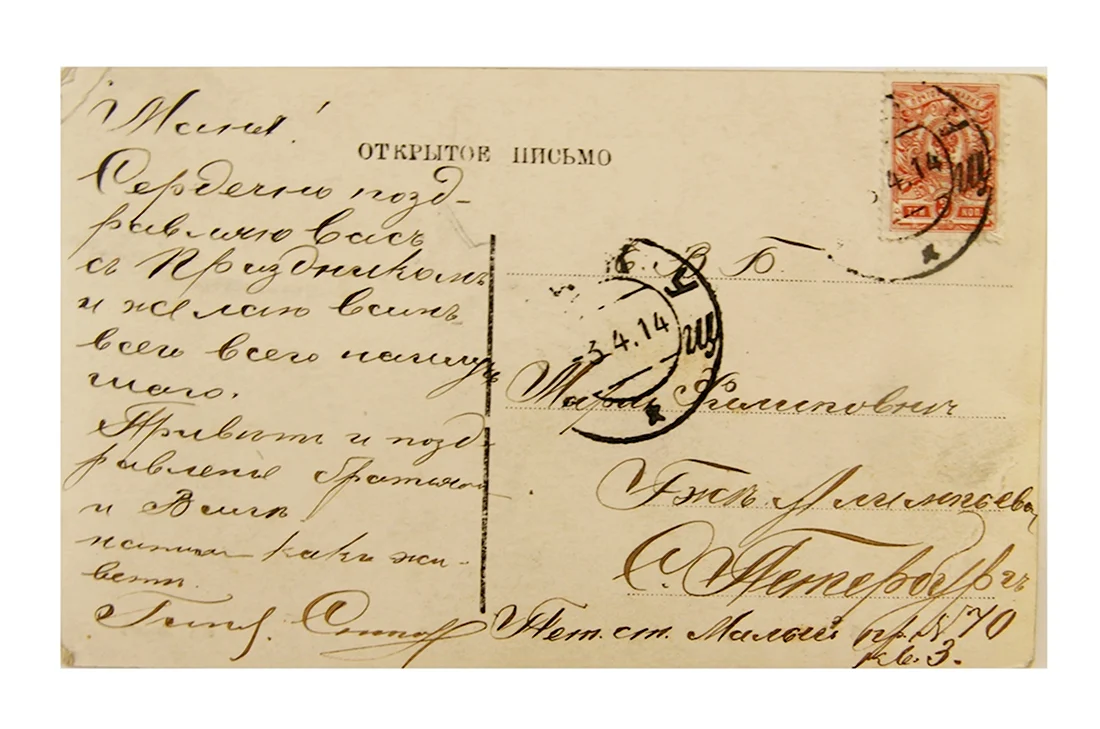 Маня!
ОТКРЫТОЕ ПИСЬМО
Сердечно позд-
равляю васъ
съ Праздникомъ
и желаю вамъ
всего всего наилуч
шаго.
Приветъ и позд-
равленя братьям
и
напиши какъ жи-
вети.
Е. В. Б.
3.4.14
4.14
Марiи Филиповнѣ
Гжѣ
С. Петербургъ
Пет. ст. Малый пр. N 70
кв. 3.